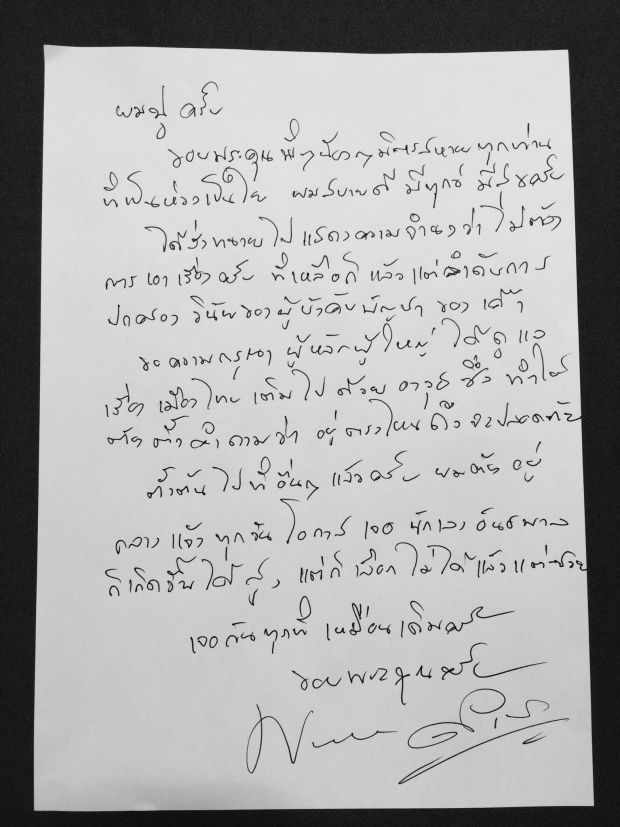 ผมปู ครับ
ขอบพระคุณ พี่ๆน้องๆมิตรสหายทุกท่าน
ที่เป็นห่วงเป็นใย ผมสบายดี มีทุกข์ มีสุขครับ
ได้ส่งทนายไปแสดงความจำนงว่า ไม่ต้อง
การเอาเรื่องครับ ที่เหลือก็แล้วแต่ลำดับการ
ปกครอง วินัยของผู้บังคับบัญชา ของ เค้า
ขอความกรุณา ผู้หลักผู้ใหญ่ ได้ดูแล
เรื่อง เมืองไทย เต็มไปด้วย อาวุธ ซึ่งทำให้
ต้อง ตั้งคำถามว่า อยู่ตรงไหนถึงจะปลอดภัย
ตั้งต้น ไปที่อื่นๆ แล้วครับ ผมต้อง อยู่
กลางแจ้ง ทุกวัน โอกาส เจอ นักเลง อันธพาล
ก็เกิดขึ้นได้สูง แต่ก็เลือกไม่ได้แล้วแต่ซวย
เจอกันทุกที่ เหมือนเดิมครับ
ขอบพระคุณครับ